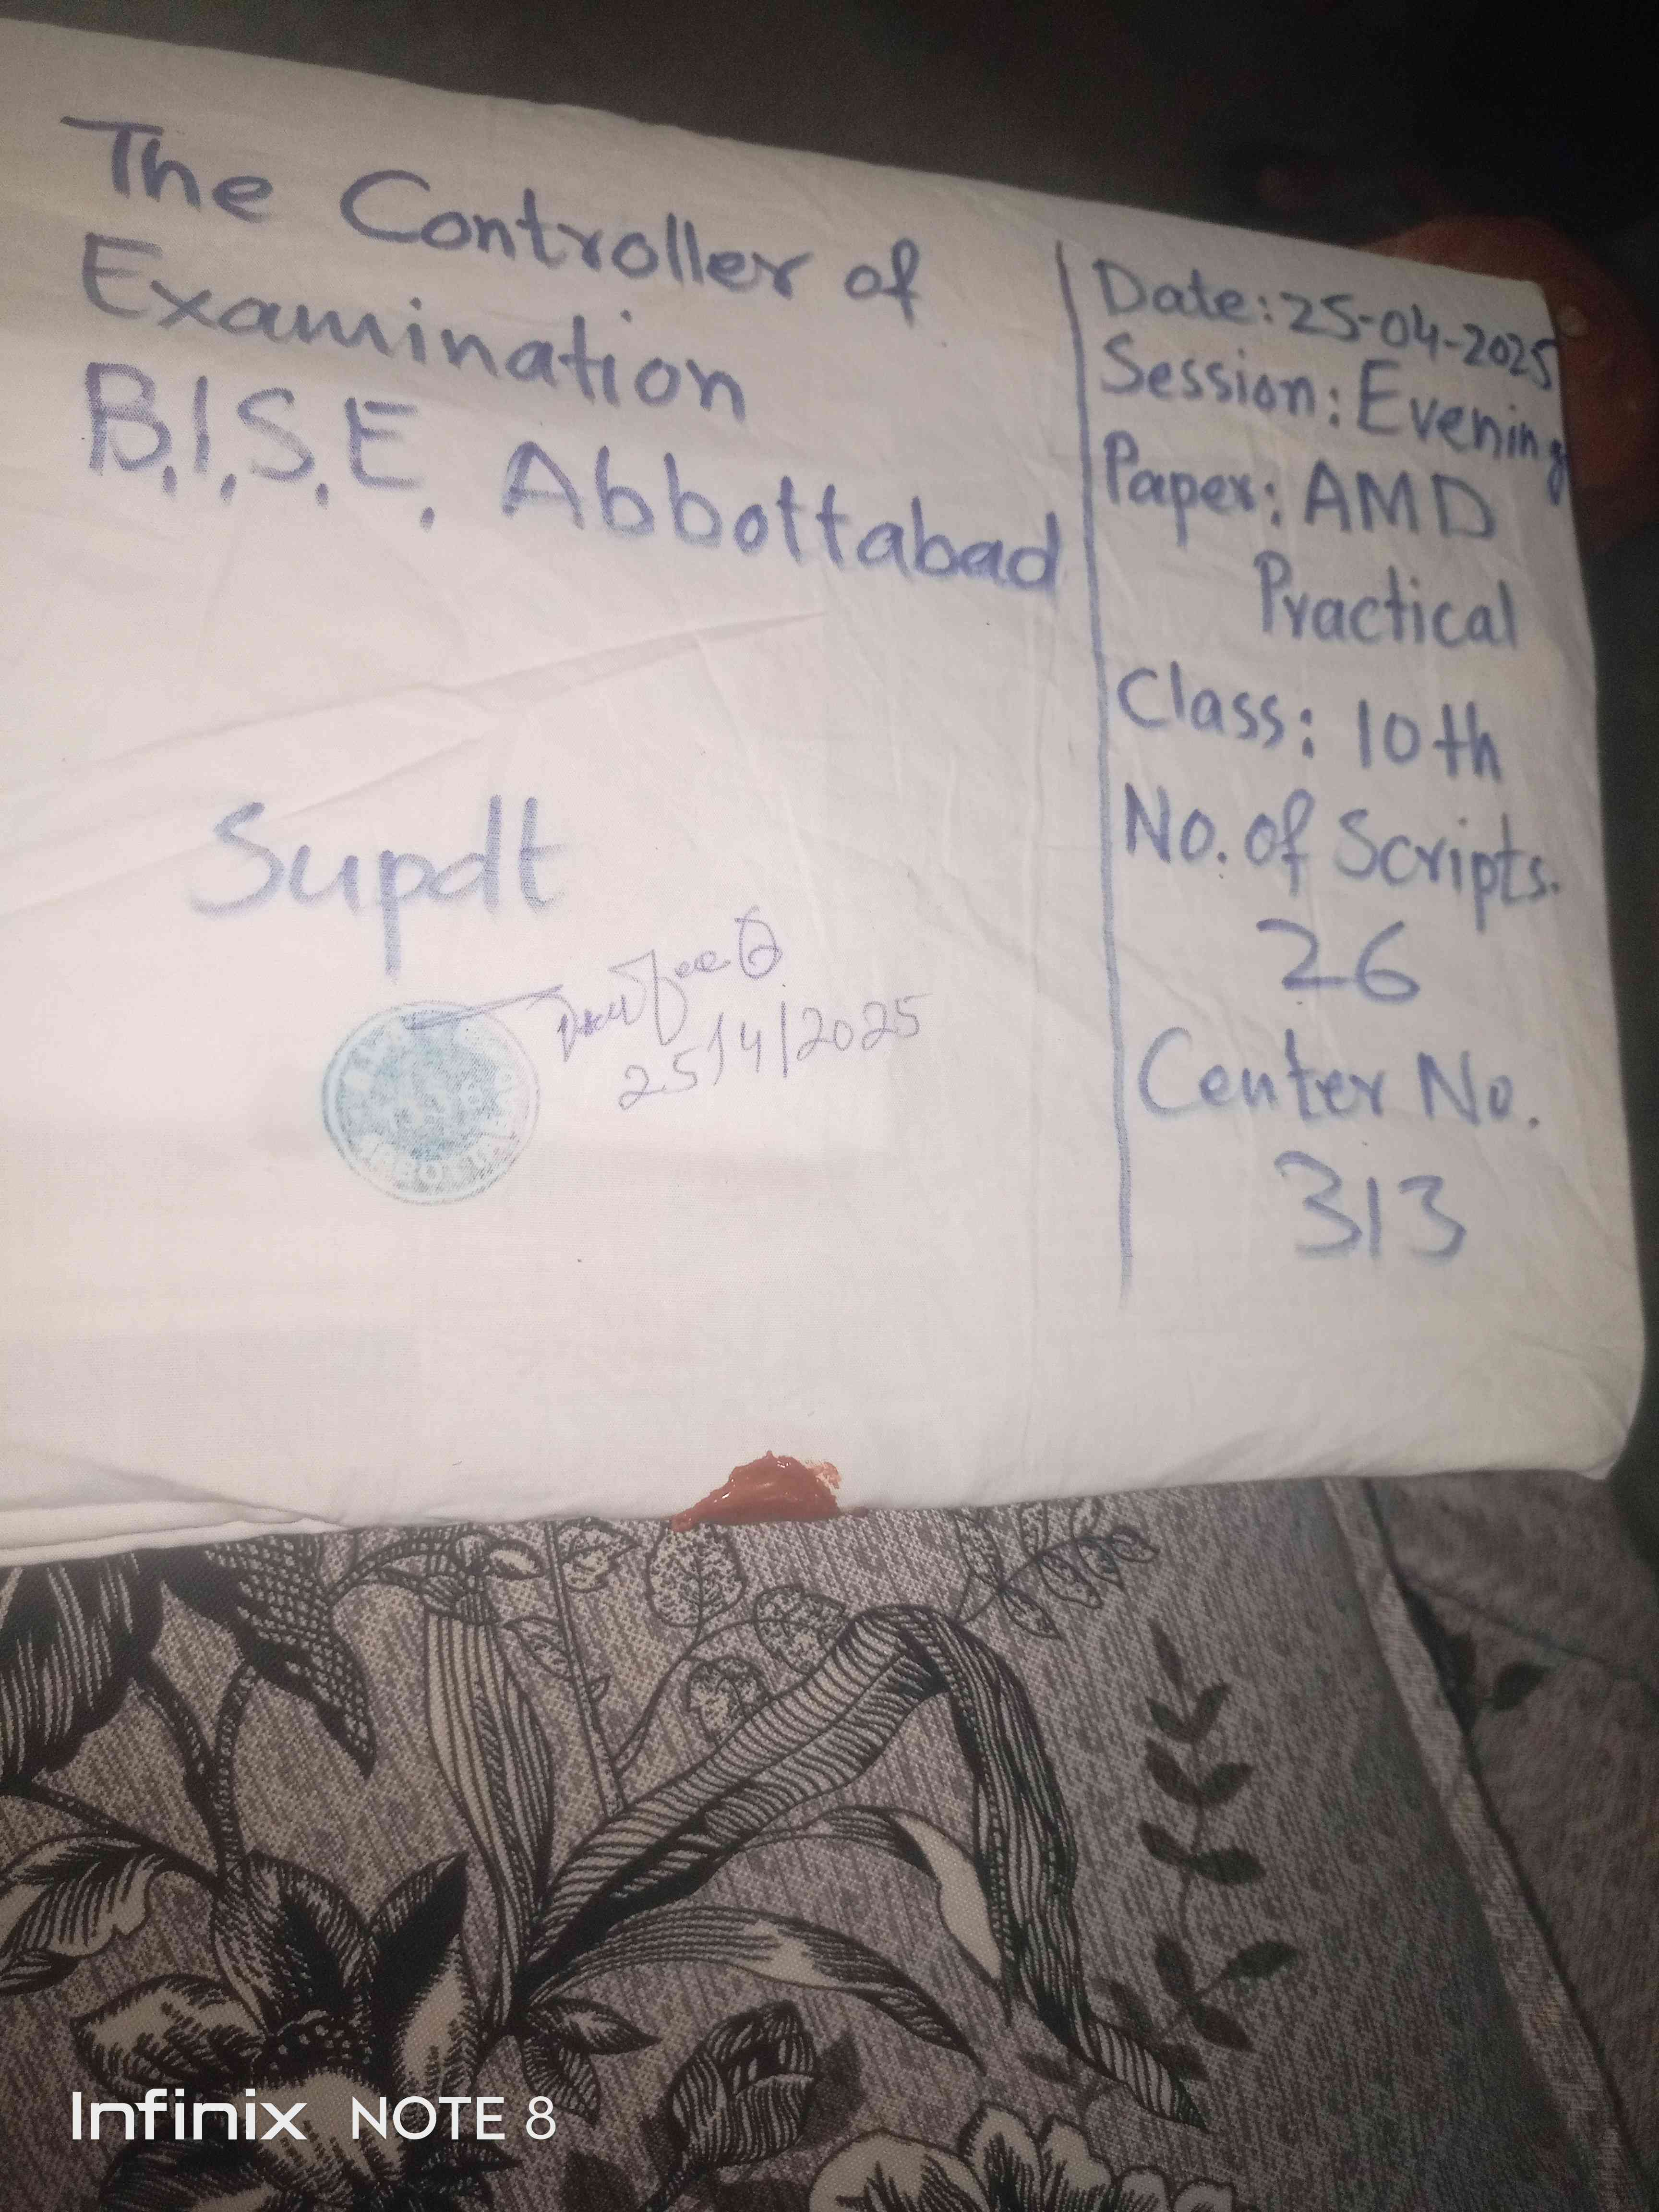 The Controller of
Examination
B.I.S.E. Abbottabad
Supdt
25/4/2025
Date: 25-04-2025
Session: Evening
Paper: AMD
Practical
Class: 10th
No. of Scripts.
26
Center No.
313
Infinix NOTE 8